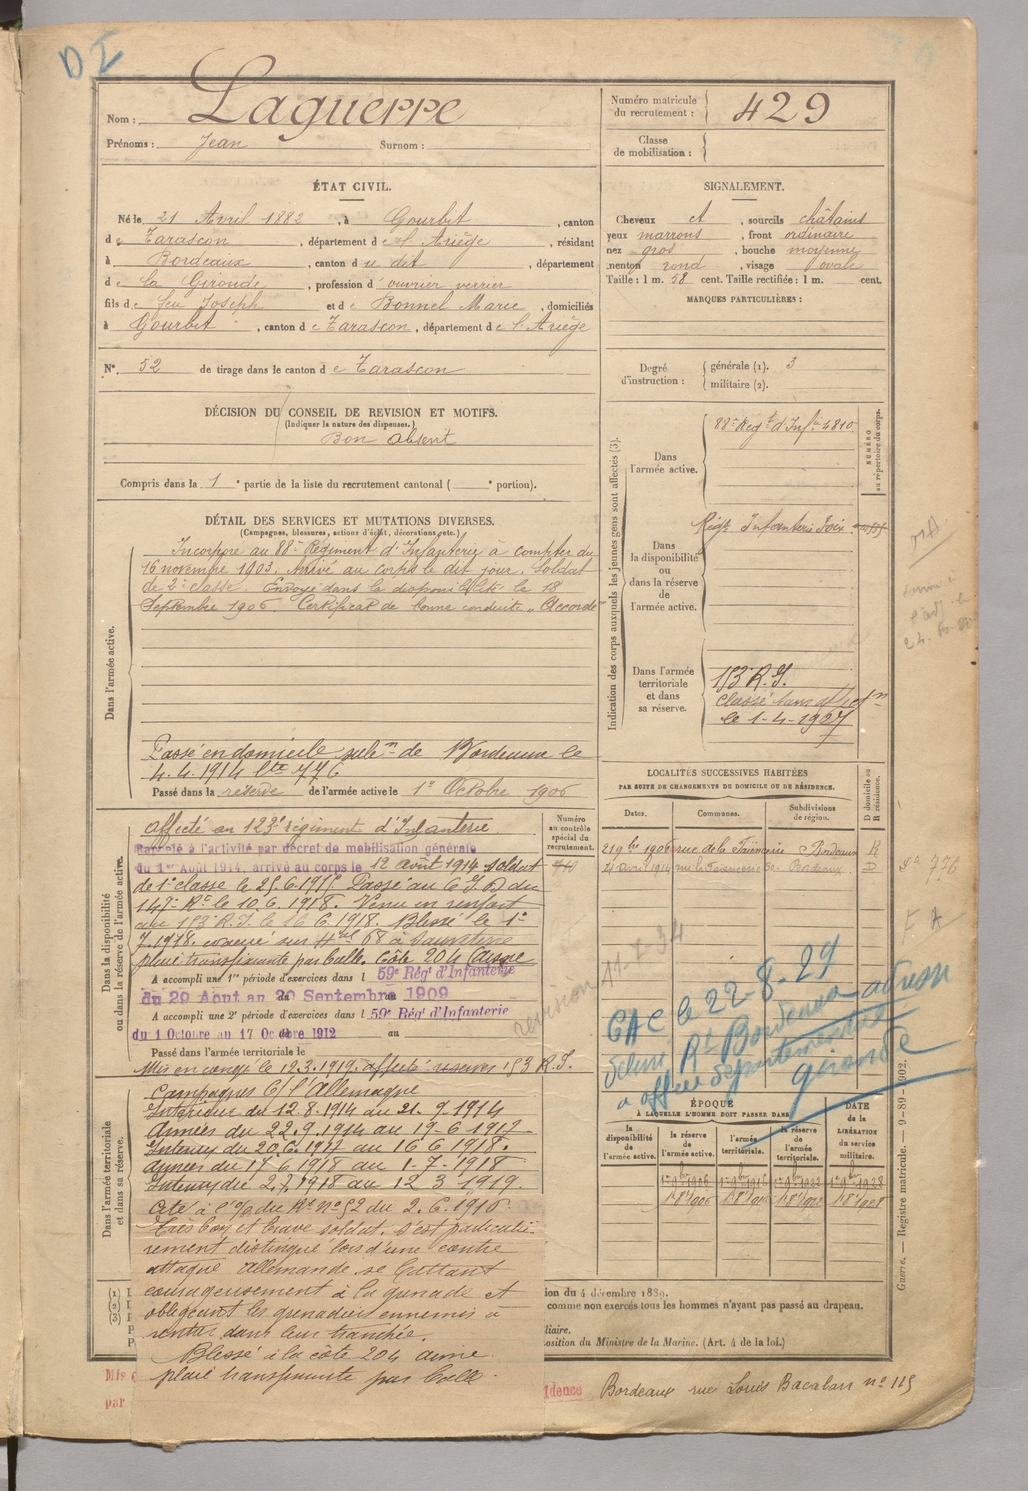 DI
Nom : Laguerre
Prénoms : Jean Surnom :
Numéro matricule du recrutement : 429
Classe de mobilisation :
ÉTAT CIVIL.
Né le 21 Avril 1882, à Gourbit, canton
de Tarascon, département de l'Ariège, résidant
à Bordeaux, canton du dit, département
de la Gironde, profession d'ouvrier verrier
fils de feu Joseph et de Bonnel Marie, domiciliés
à Gourbit, canton de Tarascon, département de l'Ariège
N° 52 de tirage dans le canton de Tarascon
SIGNALEMENT.
Cheveux et, sourcils châtains
yeux marrons, front ordinaire
nez gros, bouche moyenne
menton rond, visage ovale
Taille : 1 m. 58 cent. Taille rectifiée : 1 m. cent.
MARQUES PARTICULIÈRES :
Degré d'instruction : générale (1). 3
militaire (2).
DÉCISION DU CONSEIL DE REVISION ET MOTIFS.
(Indiquer la nature des dispenses.)
Bon absent
Compris dans la 1e partie de la liste du recrutement cantonal ( e portion).
DÉTAIL DES SERVICES ET MUTATIONS DIVERSES.
(Campagnes, blessures, actions d'éclat, décorations, etc.)
Dans l'armée active.
Incorporé au 88e Régiment d'Infanterie à compter du
16 novembre 1903. Arrivé au corps le dit jour. Soldat
de 2e classe. Envoyé dans la disponibilité le 18
Septembre 1906. Certificat de bonne conduite "Accordé"
Passé en domicile sub.on de Bordeaux le
4.4.1914 776
Passé dans la réserve de l'armée active le 1er Octobre 1906
Indication des corps auxquels les jeunes gens sont affectés (3).
NUMÉRO au répertoire du corps.
Dans l'armée active.
88e Régt d'Infie 4810
Dans la disponibilité ou dans la réserve de l'armée active.
Régt Infanterie Foix
Dans l'armée territoriale et dans sa réserve.
183 R.I.
Classé sans aff.on
le 1-4-1927
LOCALITÉS SUCCESSIVES HABITÉES
PAR SUITE DE CHANGEMENTS DE DOMICILE OU DE RÉSIDENCE.
Dates. Communes. Subdivisions de région. D domicile ou R résidence.
1906 rue de la Faïencerie Bordeaux R
4 avril 1914 rue la Faïencerie 30 Bordeaux D
776
F A
Dans la disponibilité ou dans la réserve de l'armée active.
Numéro au contrôle spécial du recrutement.
affecté au 123e régiment d'Infanterie
Rappelé à l'activité par décret de mobilisation générale
du 1er Août 1914, arrivé au corps le 12 août 1914 soldat
de 1e classe le Passé au C.I.D du
147e Rt le 10.6.1918. Venu en renfort
au 183 R.I. le 16.6.1918. Blessé le 1er
7.1918. évacué sur Htal 68 à
plaie transfixante par balle. Côte 204 Aisne
A accompli une 1re période d'exercices dans l 59e Régt d'Infanterie
du 29 Aout au 20 Septembre 1909
A accompli une 2e période d'exercices dans l 59e Régt d'Infanterie
du 1 Octobre au 17 Octobre 1912 au
Passé dans l'armée territoriale le
Mis en congé le 12.3.1919. affecté réserves 183 R.I.
révision 11-7-34
CAC le 22-8-29
Rt Bordeaux adresse
a office départemental
gironde
Dans l'armée territoriale et dans sa réserve.
Campagnes C/ l'Allemagne
Intérieur du 12.8.1914 au 21.9.1914
Armées du 22.9.1914 au 19-6-1917
Intérieur du 20.6.1917 au 16.6.1918.
Armées du 17.6.1918 au 1-7-1918
Intérieur du 2.7.1918 au 12 3 1919.
Cité à l'o/ du Rt n° 52 du 2.6.1916
Très bon et brave soldat. S'est particuliè-
rement distingué lors d'une contre
attaque Allemande se battant
courageusement à la grenade et
obligeant les grenadiers ennemis à
rentrer dans leur tranchée.
Blessé à la côte 204 aisne
plaie transfixante par balle.
ÉPOQUE
À LAQUELLE L'HOMME DOIT PASSER DANS
la disponibilité de l'armée active. la réserve de l'armée active. l'armée territoriale. la réserve de l'armée territoriale.
DATE de la LIBÉRATION du service militaire.
1er 9bre 1906 1er 9bre 1916 1er 9bre 1922 1er 9bre 1928
ion du 4 décembre 1889.
comme non exercés tous les hommes n'ayant pas passé au drapeau.
liaire.
osition du Ministre de la Marine. (Art. 4 de la loi.)
Guerre. — Registre matricule. — 9-89 — 1902.
Mis
par
idence Bordeaux rue Louis Bacalan n° 115